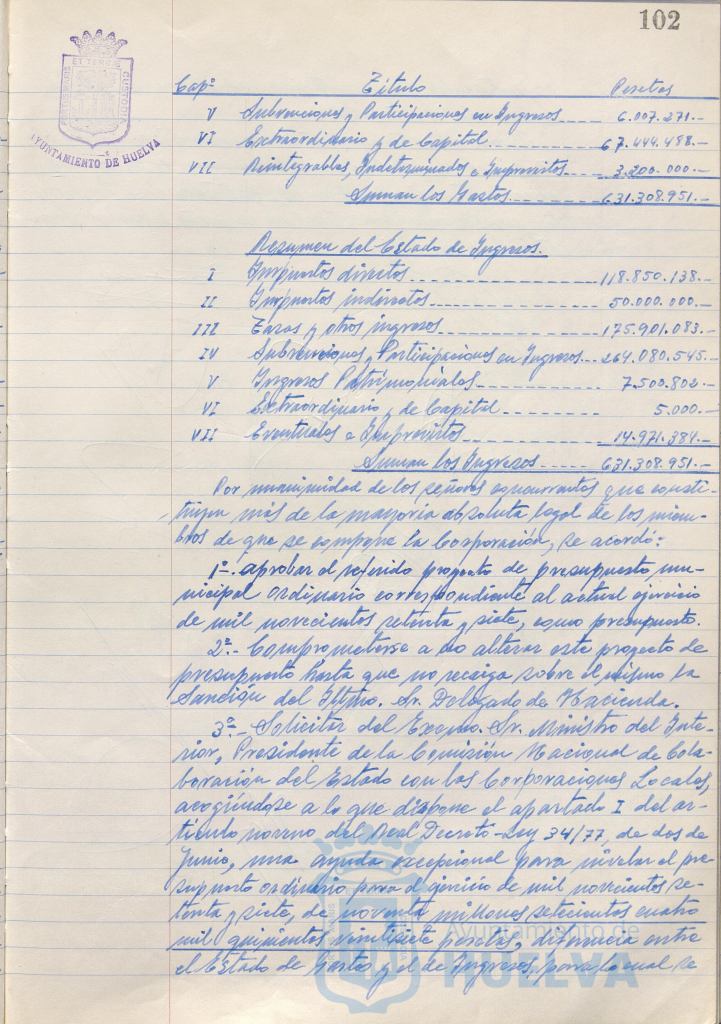 102
PORTUS MARIS ET TERRAE CUSTODIA
AYUNTAMIENTO DE HUELVA
Capº Título Pesetas
V Subvenciones y Participaciones en Ingresos 6.007.271.-
VI Extraordinario y de Capital 67.444.488.-
VII Reintegrables, Indeterminados e Imprevistos 3.200.000.-
Suman los Gastos 631.308.951.-
Resumen del Estado de Ingresos.
I Impuestos directos 118.850.138.-
II Impuestos indirectos 50.000.000.-
III Tasas y otros ingresos 175.901.083.-
IV Subvenciones y Participaciones en Ingresos 264.080.545.-
V Ingresos Patrimoniales 7.500.802.-
VI Extraordinario y de Capital 5.000.-
VII Eventuales e Imprevistos 14.971.384.-
Suman los Ingresos 631.308.951.-
Por unanimidad de los señores concurrentes que consti-
tuyen más de la mayoría absoluta legal de los miem-
bros de que se compone la Corporación, se acordó:
1º.- aprobar el referido proyecto de presupuesto mu-
nicipal ordinario correspondiente al actual ejercicio
de mil novecientos setenta y siete, como presupuesto.
2º.- Comprometerse a no alterar este proyecto de
presupuesto hasta que no recaiga sobre el mismo la
Sanción del Iltmo. Sr. Delegado de Hacienda.
3º.- Solicitar del Excmo. Sr. Ministro del Inte-
rior, Presidente de la Comisión Nacional de Cola-
boración del Estado con las Corporaciones Locales,
acogiéndose a lo que dispone el apartado I del ar-
tículo noveno del Real Decreto-Ley 34/77, de dos de
Junio, una ayuda excepcional para nivelar el pre-
supuesto ordinario para el ejercicio de mil novecientos se-
tenta y siete, de noventa millones setecientos cuatro
mil quinientos veintisiete pesetas, diferencia entre
el Estado de gastos y el de Ingresos, para lo cual se
Ayuntamiento de
HUELVA